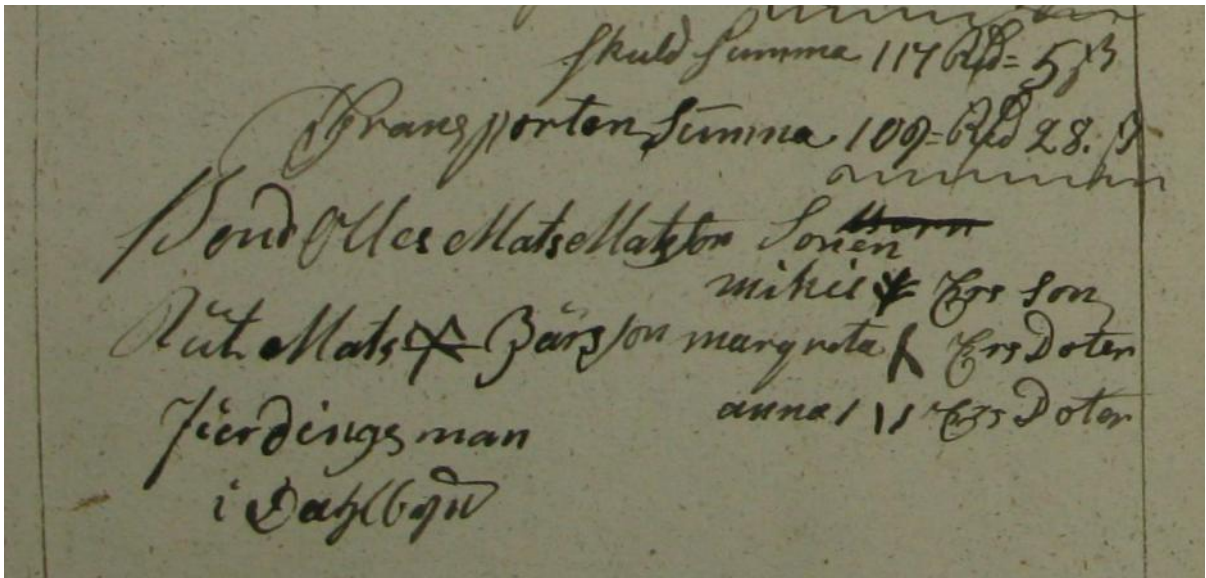 Skuld Summa 117 Rd= 5 ß
Transporten Summa 109= Rd 28. ß
Bond Olles Mats Matsson Sonen
mikil Ers Son
Rüt Mats Pärsson margreta Ers Doter
anna Ers Doter
Fierdingsman
i Dahlbyn